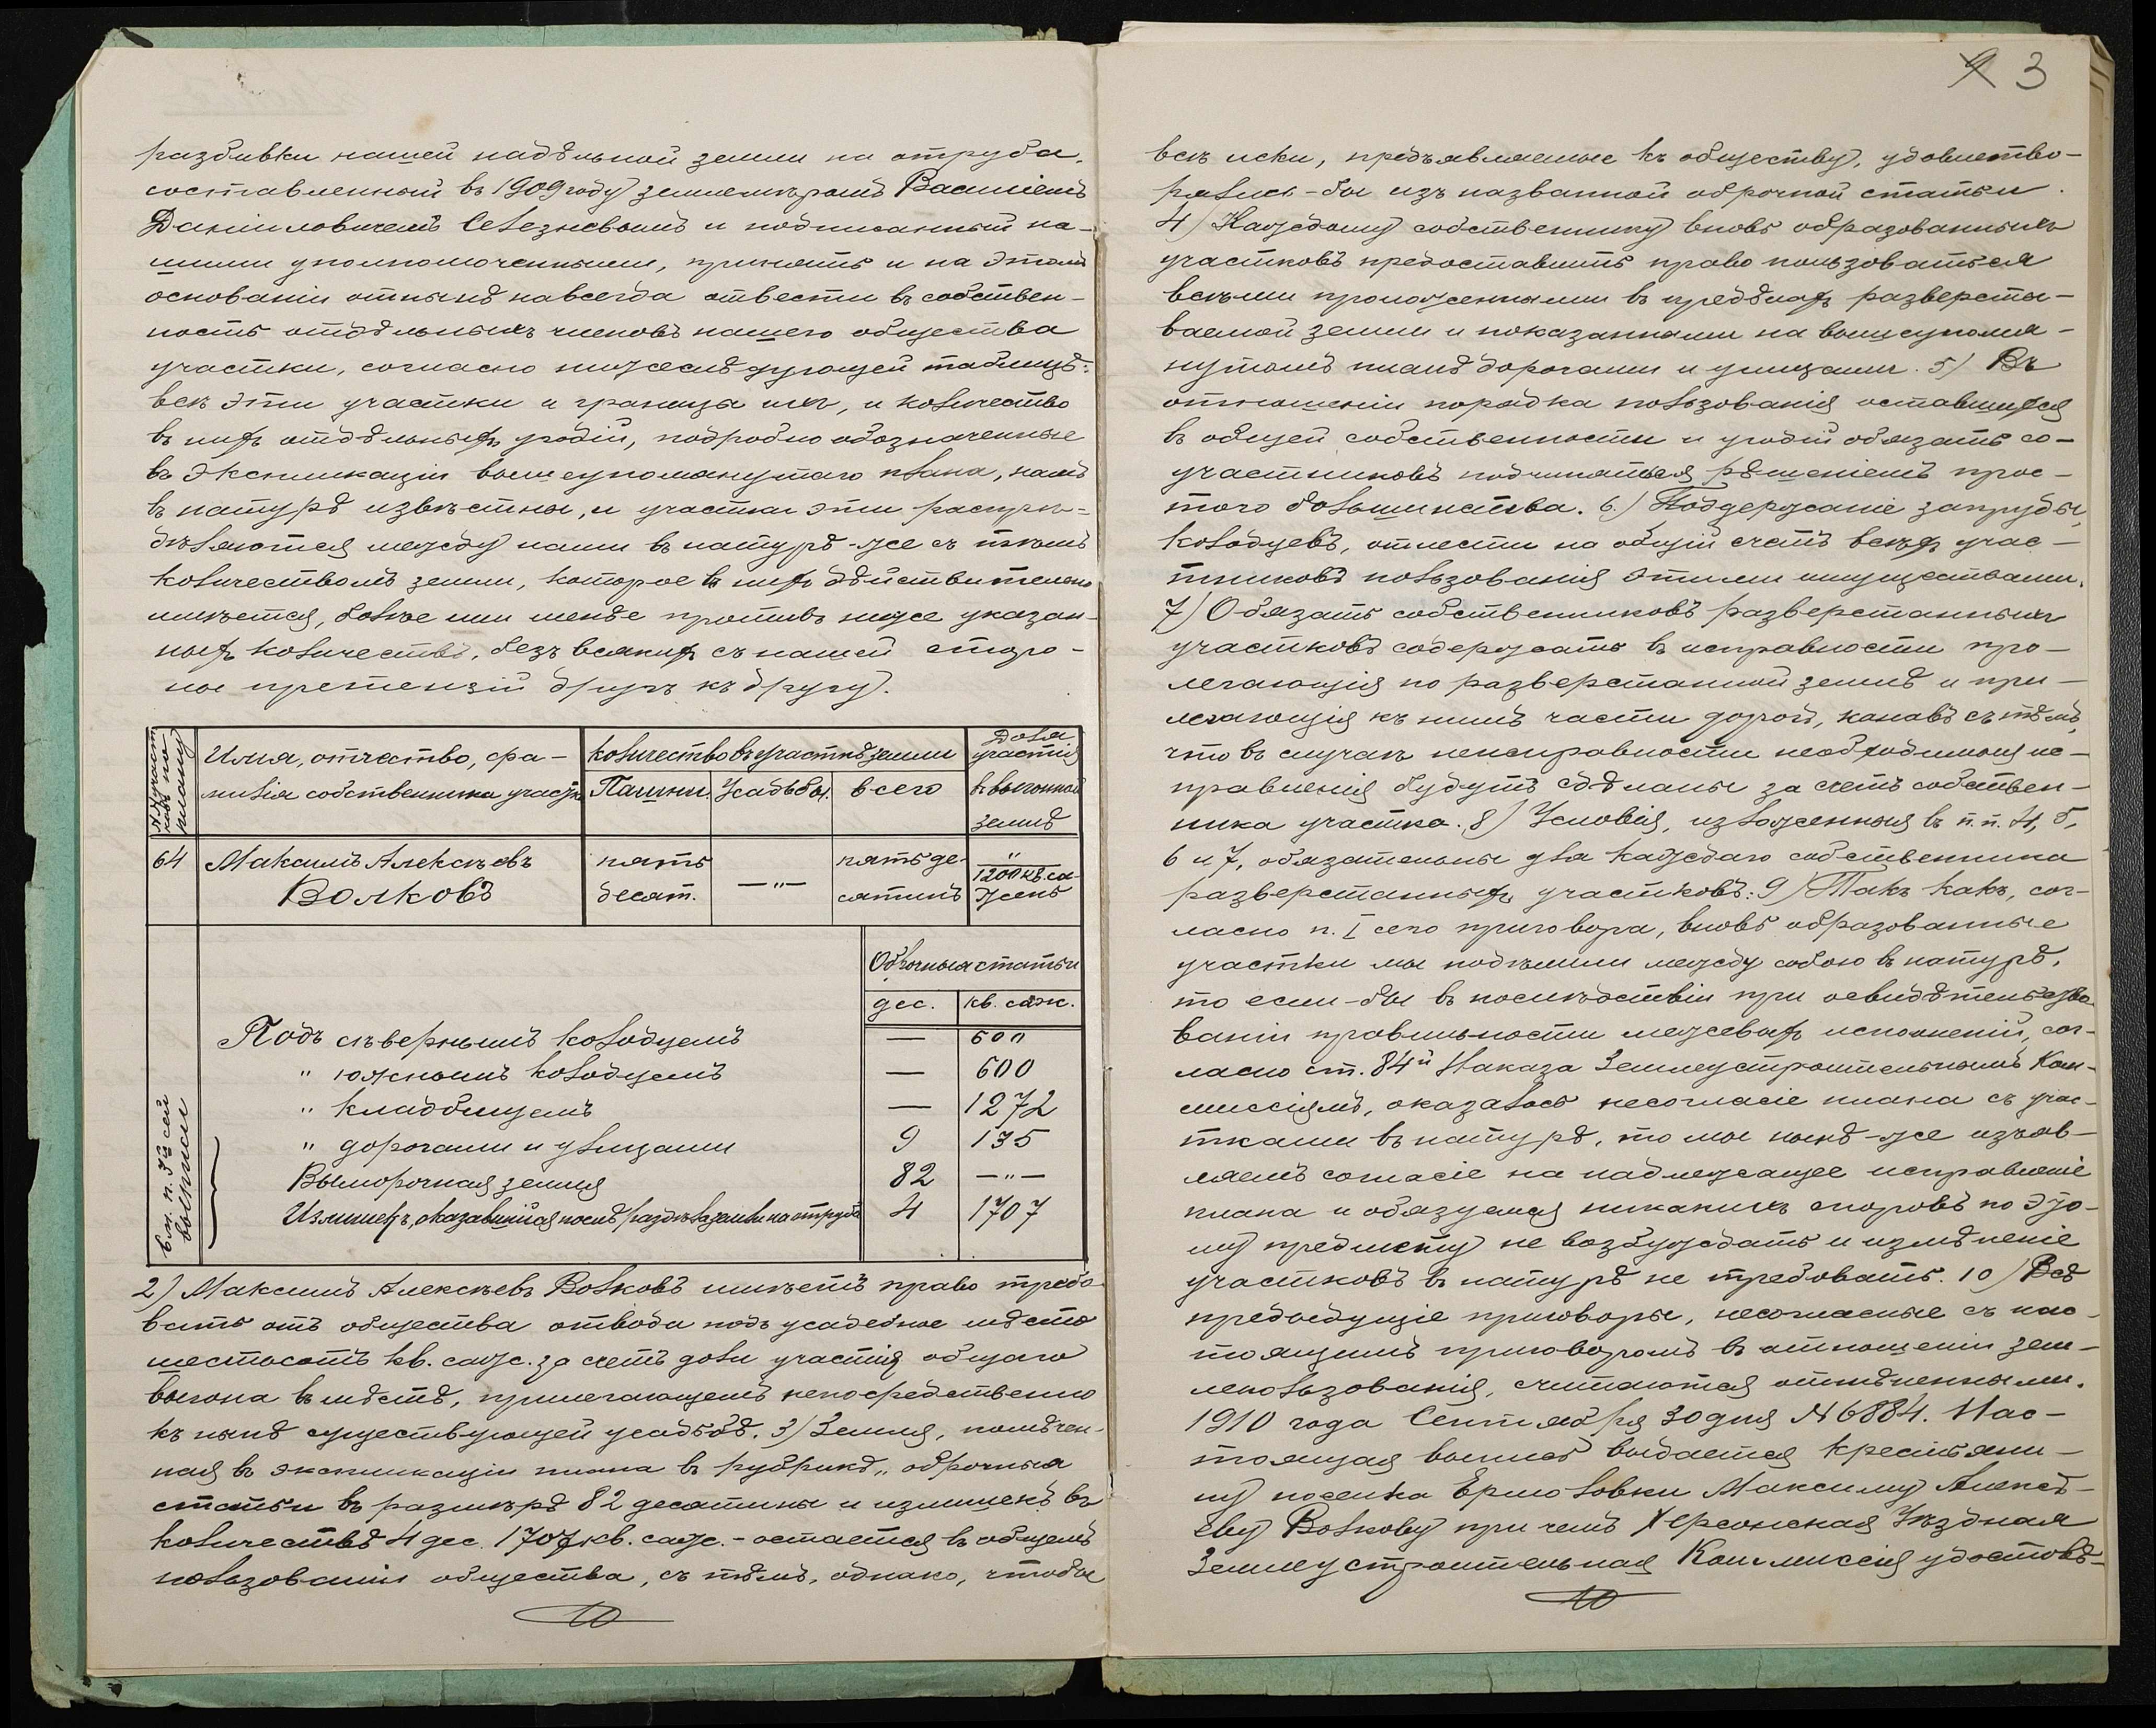 разбивки нашей надѣльной земли на отруба,
составленный въ 1909 году землемѣромъ Василіемъ
Даниловичемъ Селезневымъ и подписанный на-
шими уполномоченными, принять и на этомъ
основаніи отнынѣ навсегда отвести въ собствен-
ность отдѣльныхъ членовъ нашего общества
участки, согласно нижеслѣдующей таблицѣ:
всѣ эти участки и границы ихъ, и количество
въ нихъ отдѣльныхъ угодій, подробно обозначенные
въ экспликаціи вышеупомянутаго плана, намъ
въ натурѣ извѣстны, и участки эти распре-
дѣляются между нами въ натурѣ-же съ тѣмъ
количествомъ земли, которое въ нихъ дѣйствительно
имѣется, болѣе или менѣе противъ ниже указан-
ныхъ количествъ, безъ всякихъ съ нашей сторо-
ны претензій другъ къ другу.
№№ участ- Имя, отчество, фа- количество въ участкѣ земли Доля
ковъ по милія собственника участка участія
плану Пашни. Усадьбы. всего въ выгонной
землѣ
64 Максимъ Алексѣевъ пять пять де- "
Волковъ десят. —"— сятинъ 1200 кв. са-
жень
Оброчныя статьи
дес. кв. саж.
Подъ сѣвернымъ колодцемъ — 600
" южнымъ колодцемъ — 600
" кладбищемъ — 1272
" дорогами и улицами 9 135
Выморочная земля 82 —"—
Излишекъ, оказавшійся послѣ раздѣла земли на отруба 4 1707
См. п. 3й сей
выписи
2) Максимъ Алексѣевъ Волковъ имѣетъ право требо-
вать отъ общества отвода подъ усадебное мѣсто
шестьсотъ кв. саж. за счетъ доли участія общаго
выгона въ мѣстѣ, прилегающемъ непосредственно
къ нынѣ существующей усадьбѣ. 3) Земля, помѣчен-
ная въ экспликаціи плана въ рубрикѣ „оброчныя
статьи въ размѣрѣ 82 десятины и излишекъ въ
количествѣ 4 дес. 1707 кв. саж. - остается въ общемъ
пользованіи общества, съ тѣмъ, однако, чтобы
3
всѣ иски, предъявляемые къ обществу, удовлетво-
рялись-бы изъ названной оброчной статьи.
4) Каждому собственнику вновь образованныхъ
участковъ предоставить право пользоваться
всѣми проложенными въ предѣлахъ разверсты-
ваемой земли и показанными на вышеупомя-
нутомъ планѣ дорогами и улицами. 5) Въ
отношеніи порядка пользованія оставшихся
въ общей собственности и угодій обязать со-
участниковъ подчиняться рѣшеніемъ прос-
того большинства. 6.) Поддержаніе запруды,
колодцевъ, отнести на общій счетъ всѣхъ учас-
тниковъ пользованія этими имуществами.
7) Обязать собственниковъ разверстанныхъ
участковъ содержать въ исправности про-
легающія по разверстанной землѣ и при-
легающія къ нимъ части дорогъ, канавъ съ тѣмъ,
что въ случаѣ неисправности необходимыя ис-
правленія будутъ сдѣланы за счетъ собствен-
ника участка. 8) Условія, изложенныя въ п.п. 4, 5,
6 и 7, обязательны для каждаго собственника
разверстанныхъ участковъ: 9) Такъ какъ, сог-
ласно п. I сего приговора, вновь образованные
участки мы подѣлили между собою въ натурѣ,
то если-бы въ послѣдствіи при освидѣтельство-
ваніи правильности межевыхъ исполненій, сог-
ласно ст. 84й Наказа Землеустроительнымъ Ком-
миссіямъ, оказалось несогласіе плана съ учас-
тками въ натурѣ, то мы нынѣ-же изъяв-
ляемъ согласіе на надлежащее исправленіе
плана и обязуемся никакихъ споровъ по это-
му предмету не возбуждать и измѣненіе
участковъ въ натурѣ не требовать. 10) Всѣ
предыдущіе приговоры, несогласные съ нас-
тоящимъ приговоромъ въ отношеніи зем-
лепользованія, считаются отмѣненными.
1910 года Сентября 30 дня № 6884. Нас-
тоящая выпись выдается крестьяни-
ну поселка Ермоловки Максиму Алексѣ-
еву Волкову при чемъ Херсонская Уѣздная
Землеустроительная Коммиссія удостовѣ-